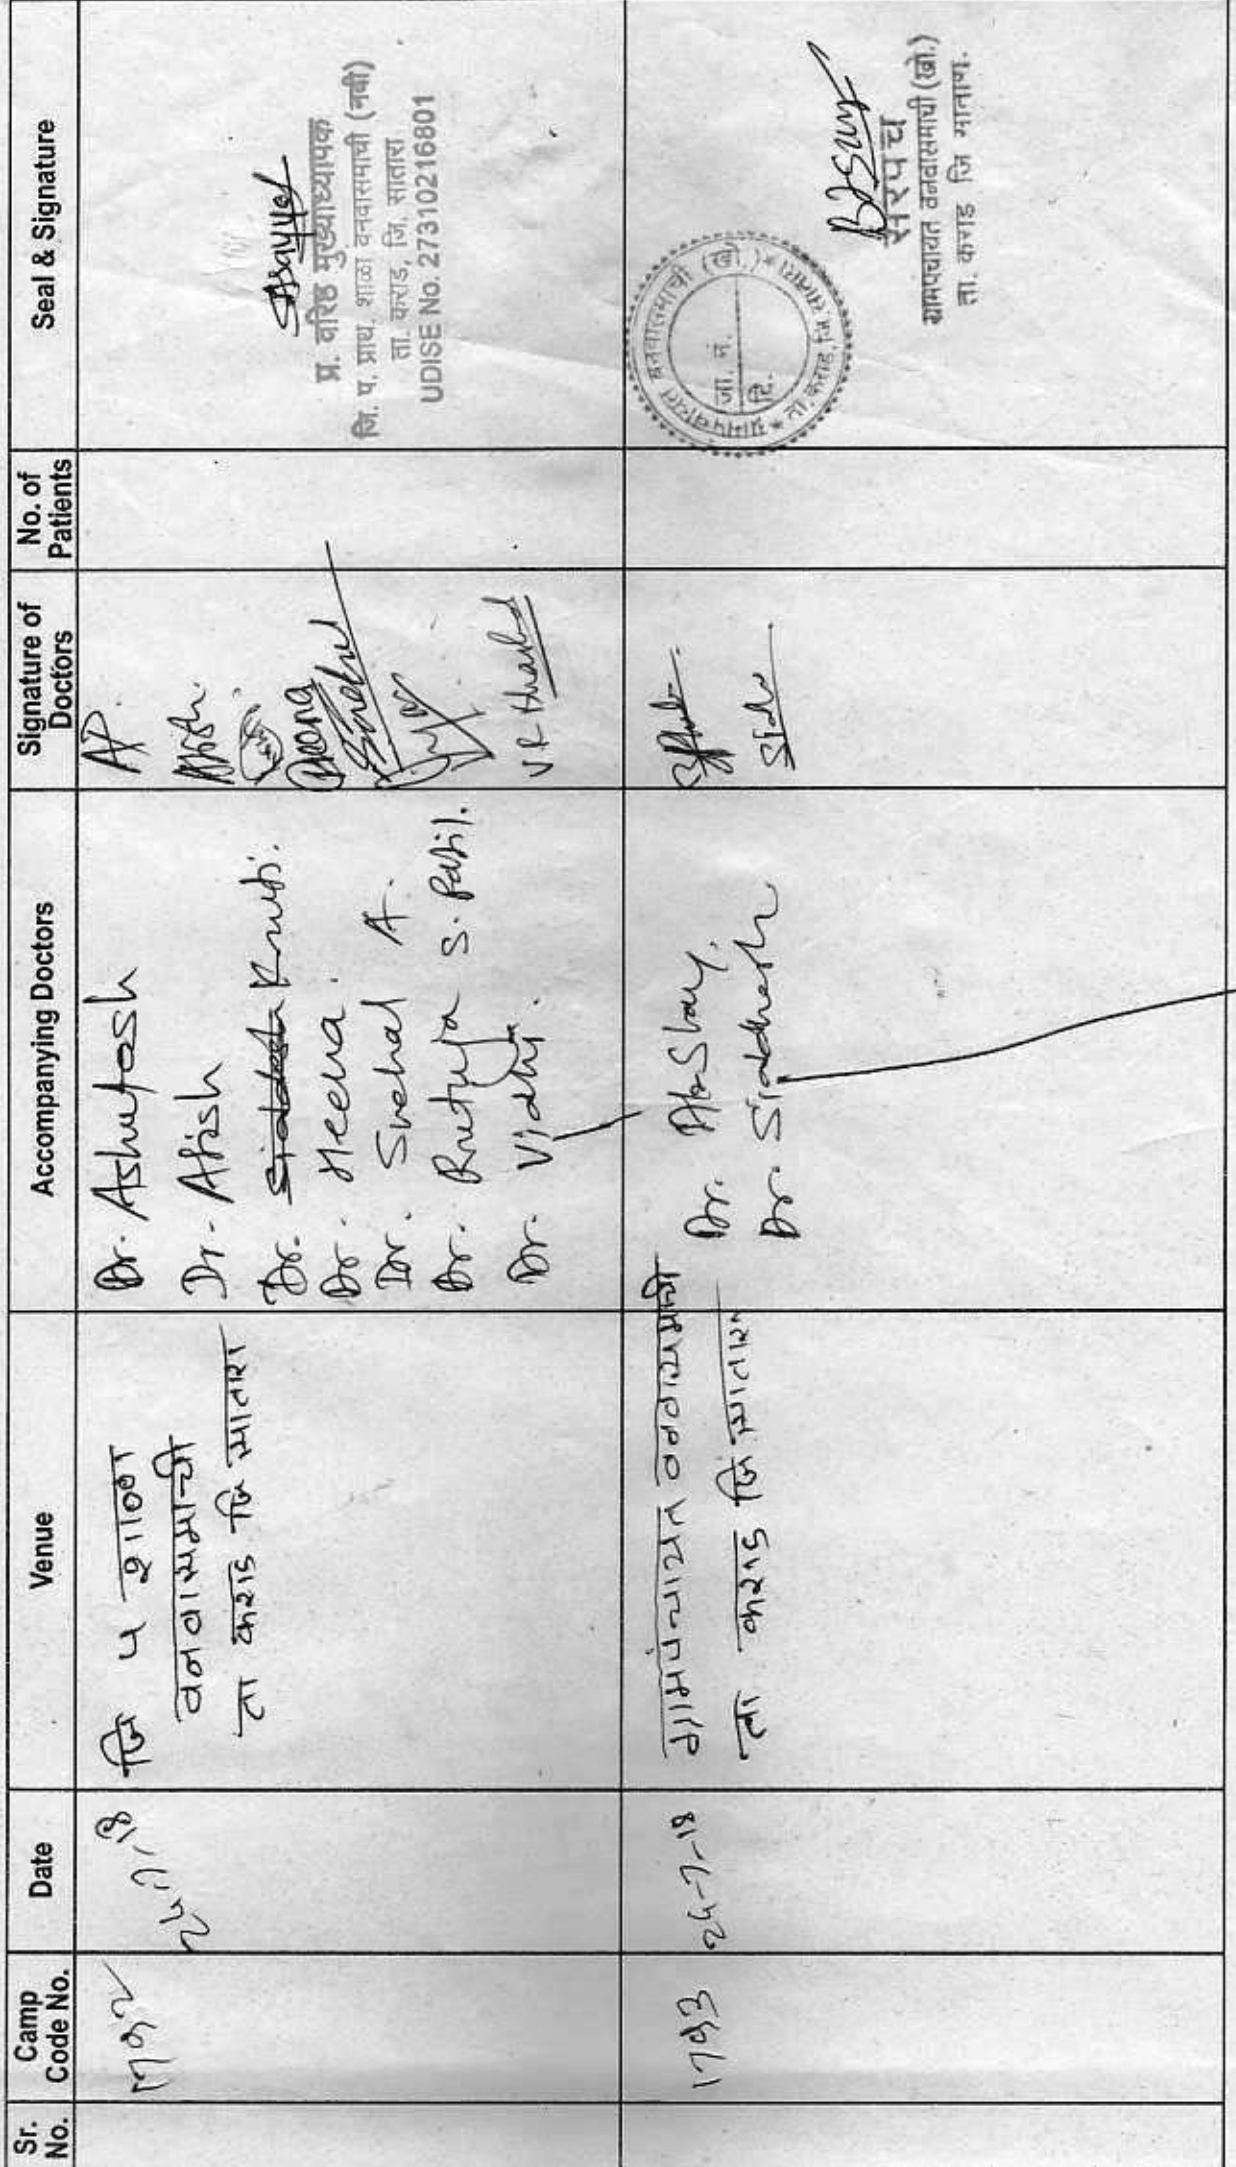 Sr. No.
Camp Code No.
Date
Venue
Accompanying Doctors
Signature of Doctors
No. of Patients
Seal & Signature
24-7-18
जि प शाळा
वनवासमाची
ता कराड जि सातारा
Dr. Ashutosh
Dr. Atish
Dr. Kruti.
Dr. Heena.
Dr. Snehal A.
Dr. Rutuja S. Patil.
Dr. Vidhi.
AP.
प्र. वरिष्ठ मुख्याध्यापक
जि. प. प्राथ. शाळा वनवासमाची (नवी)
ता. कराड, जि. सातारा
UDISE No. 27310216801
1793
24-7-18
ग्रामपंचायत वनवासमाची
ता. कराड जि सातारा
Dr. Akshay.
Dr. Siddhesh
ग्रामपंचायत वनवासमाची (खो.)
ता. कराड, जि. सातारा
जा. नं.
दि.
सरपंच
ग्रामपंचायत वनवासमाची (खो.)
ता. कराड जि सातारा.